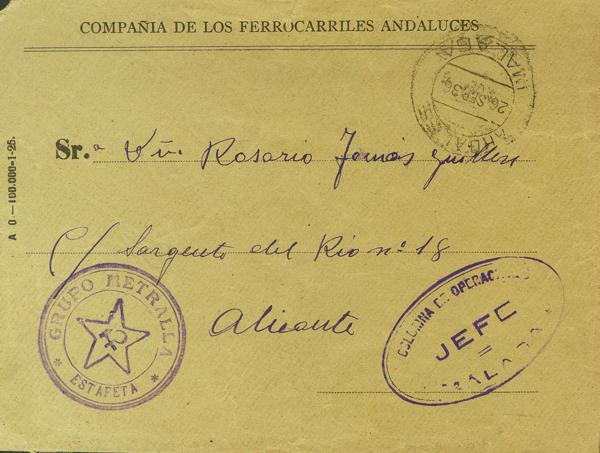 COMPAÑIA DE LOS FERROCARRILES ANDALUCES
MALAGA
26 SEP 36
A 0—100.000-1-26.
Sr.ª Dña Rosario Tomás Guillen
C/ Sargento del Rio nº 18
Alicante
GRUPO METRALLA
* ESTAFETA *
COLUMNA DE OPERACIONES
JEFE
=
MALAGA